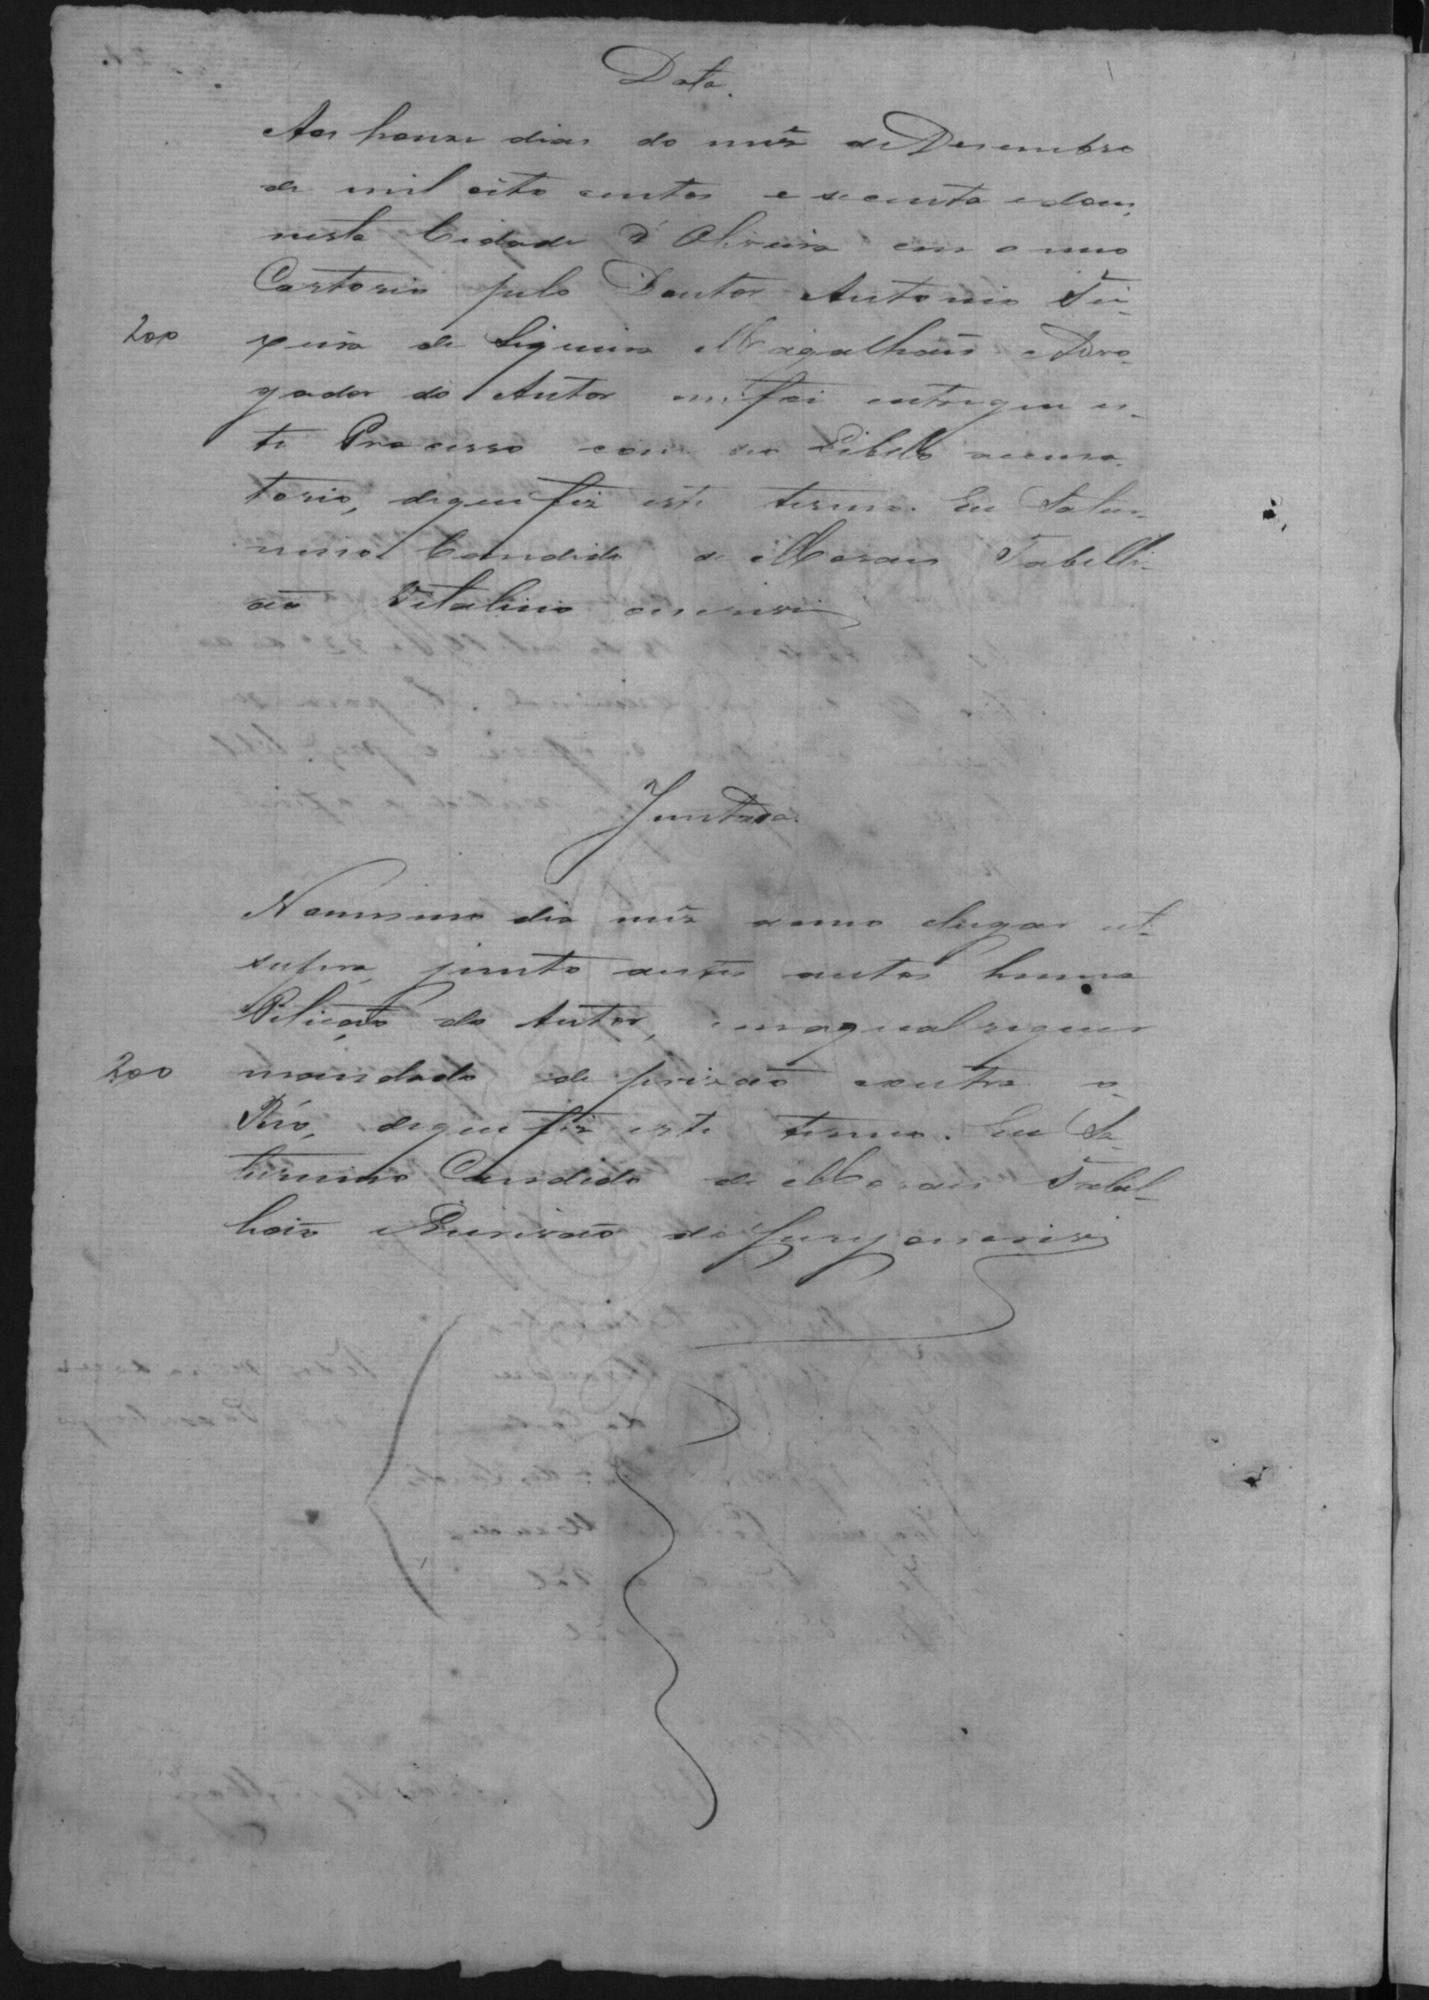 Data.
Aos honze dias do mêz de Desembro
de mil oito centos e secenta e dous,
nesta Cidade d'Oliveira em o meo
Cartorio pelo Doutor Antonio Tei-
200
xeira de Siqueira Magalhaẽs Advo-
gador do Autor me foi entregue es-
te Processo com seo Libello accusa-
torio, deque fiz este termo. Eu Satur-
nino Candido de Moraes Tabelli-
aõ Vitalicio oescrevi
Juntada.
Nomesmo dia mêz eanno elugar ut
supra, junto aestes autos huma
Petiçaõ do Autor, emaqual requer
200
mandado de prizaõ contra o
Réo, deque fiz este termo. Eu Sa-
turnino Candido de Moraes Tabel-
liaõ eEscrivaõ do Jury oescrevi